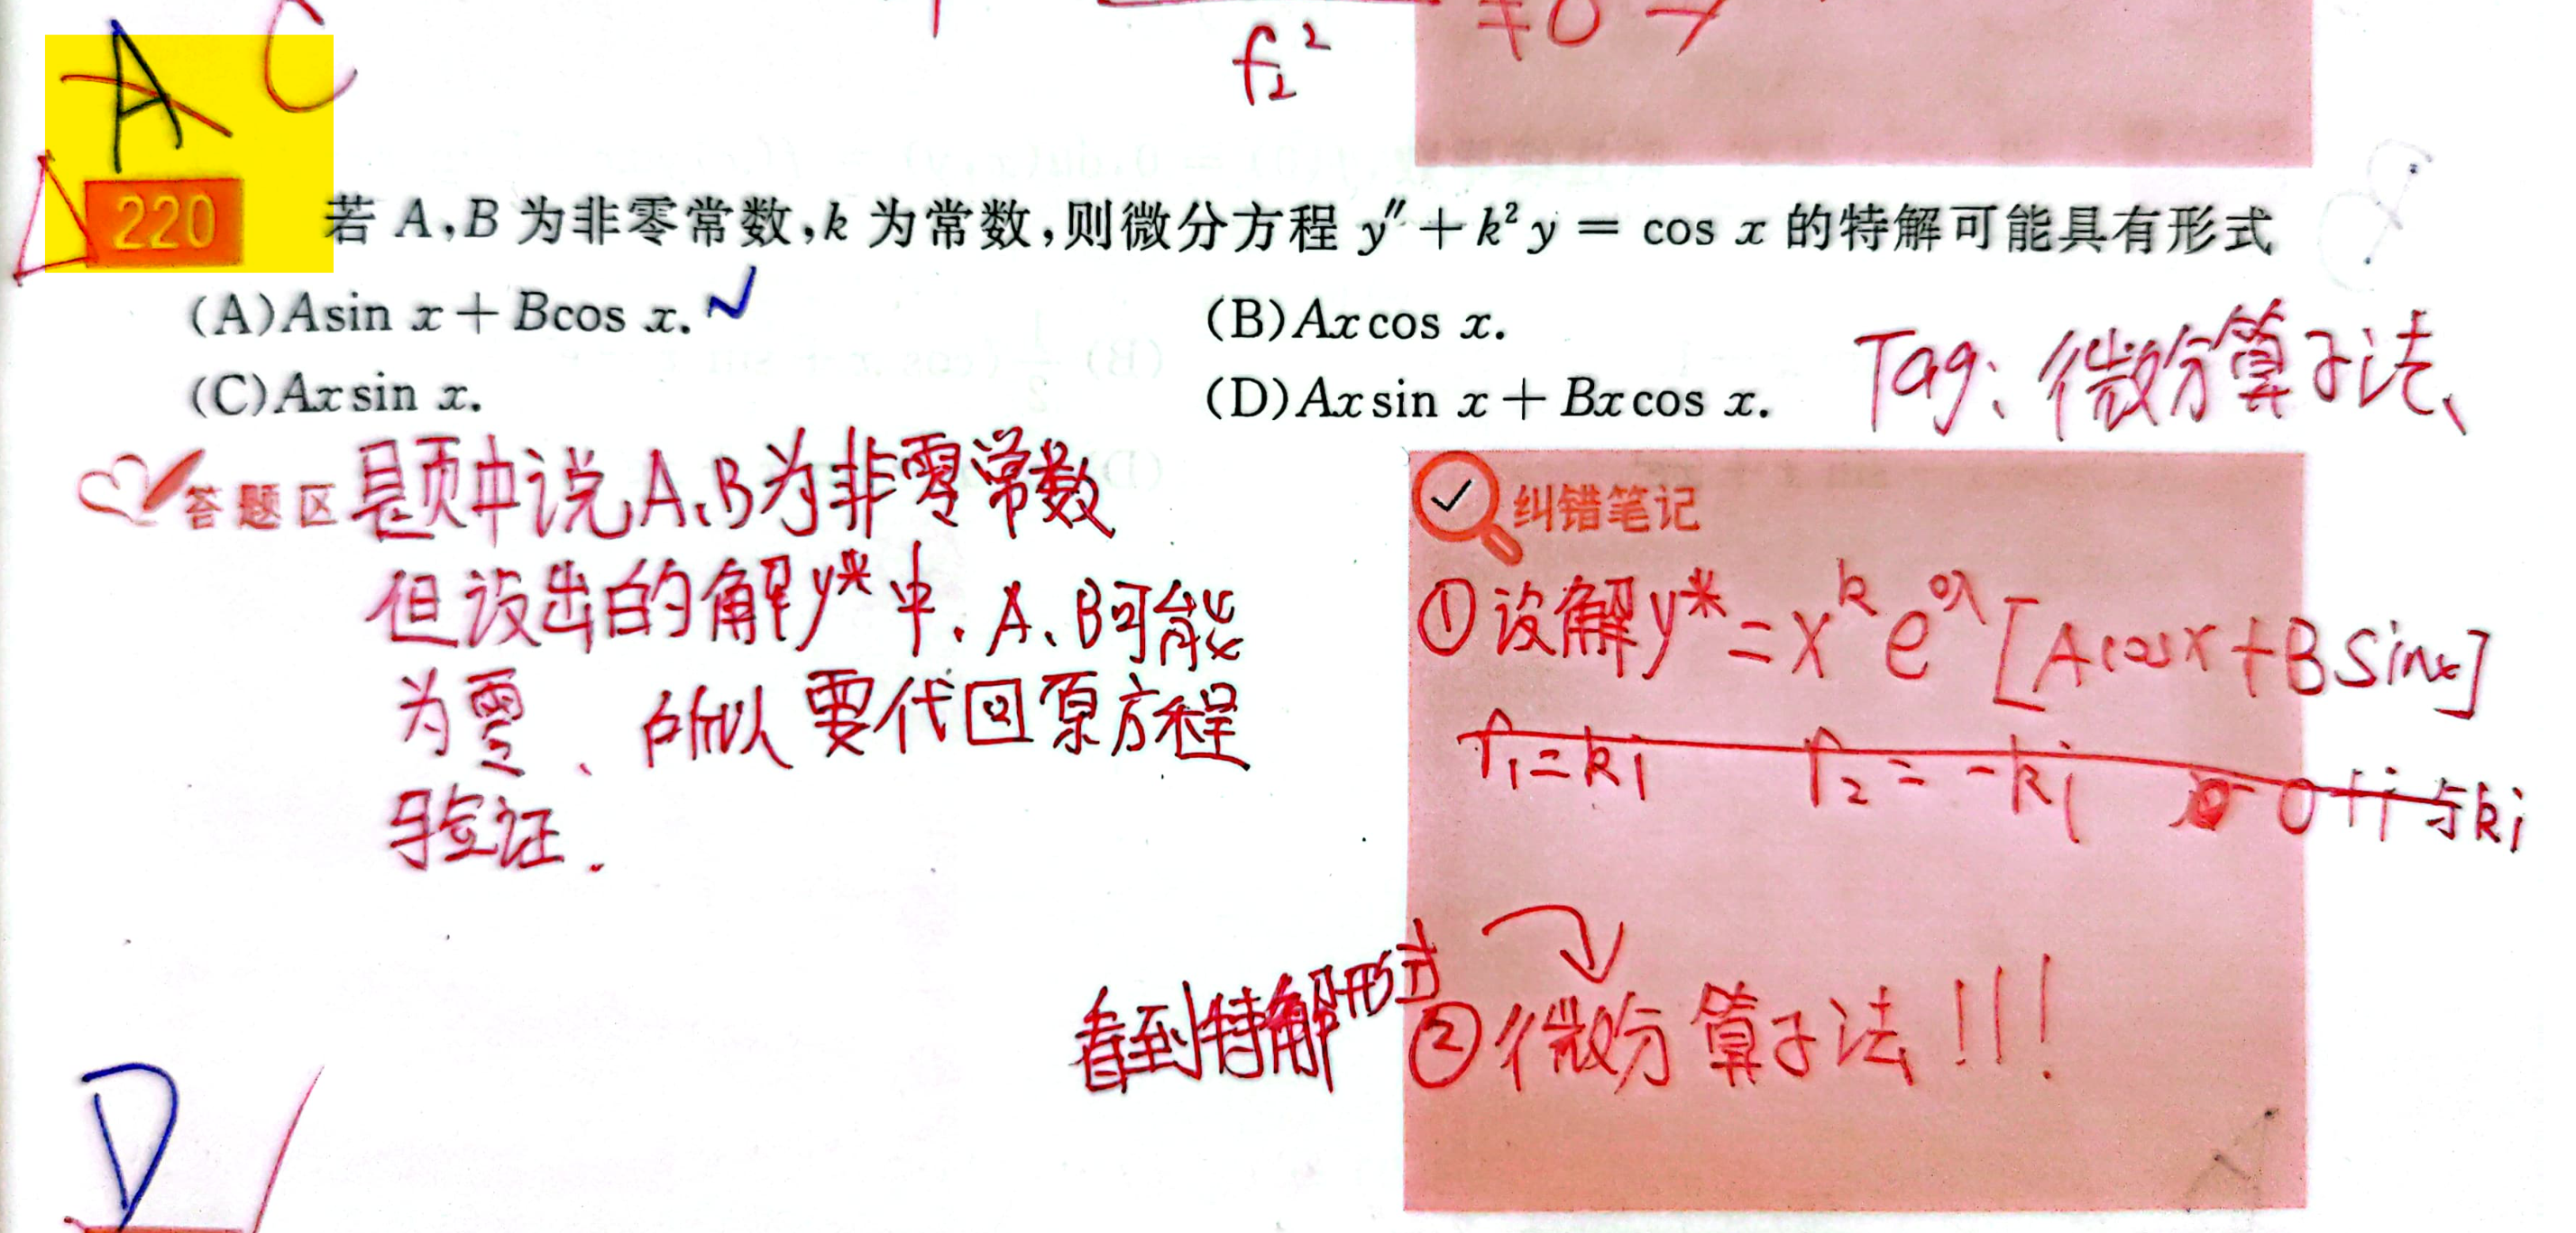 f₂²
≠0 →
A C
220 若 A,B 为非零常数,k 为常数,则微分方程 y″+k²y = cos x 的特解可能具有形式
(A)Asin x+Bcos x. ✓
(B)Axcos x.
(C)Axsin x.
(D)Axsin x+Bxcos x.
Tag: 微分算子法、
答题区 题中说 A、B为非零常数
但设出的解y*中、A、B可能
为零、所以要代回原方程
验证.
纠错笔记
①设解y*=x^k e^{0x}[Acosx+BSinx]
r₁=ki r₂=-ki 0+i与ki
看到特解形式
②微分算子法!!!
D